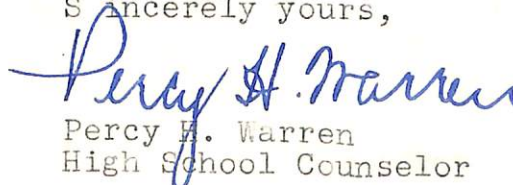 Sincerely yours,
Percy H. Warren
Percy H. Warren
High School Counselor